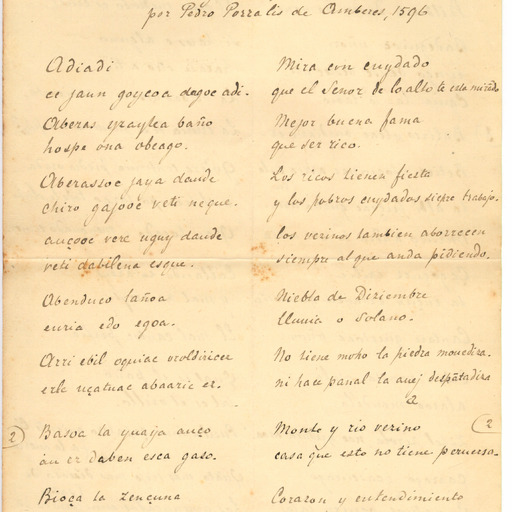 por Pedro Porralis de Amberes, 1596
Adiadi
ce jaun goycoa dagoc adi.
Aberas yzaytea baño
hospe ona obeago.
Aberassoc jaya daude
chiro gajooc veti neque.
auçooc vere uguy daude
veti dabilena esque.
Abenduco lañoa
euria edo egoa.
Arri ebil oquiac
erle uçatuac abaaric ez.
2
Basoa la yuaja auço
au ez daben esca gaso.
Bioça la zençuna
Mira con cuydado
que el Señor de lo alto te esta mirado
Mejor buena fama
que ser rico.
Los ricos tienen fiesta
y los pobros cuydados, siepre trabajo.
los vezinos tambien aborrecen
siempre al que anda pidiendo.
Niebla de Diziembre
lluuia o solano.
No tiene moho la piedra mouediza.
ni haze panal la auej despãtadiza
a
Monte y rio vezino
casa que esto no tiene peruerso.
2
Corazon y entendimiento